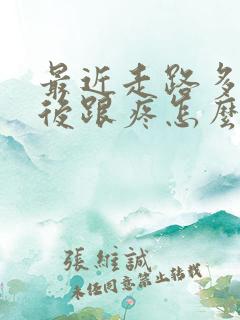 最近走路多
後跟疼怎麼
張維誠
未经同意禁止转载